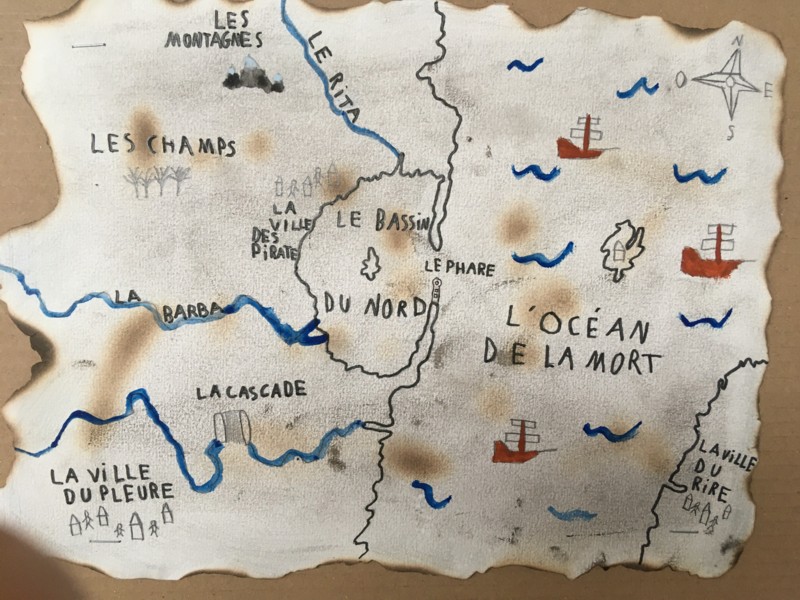 LES
MONTAGNES
LE RITA
N
O
E
S
LES CHAMPS
LA
VILLE
DES
PIRATE
LE BASSIN
DU NORD
LE PHARE
LA BARBA
L'OCÉAN
DE LA MORT
LA CASCADE
LA VILLE
DU PLEURE
LA VILLE
DU
RIRE